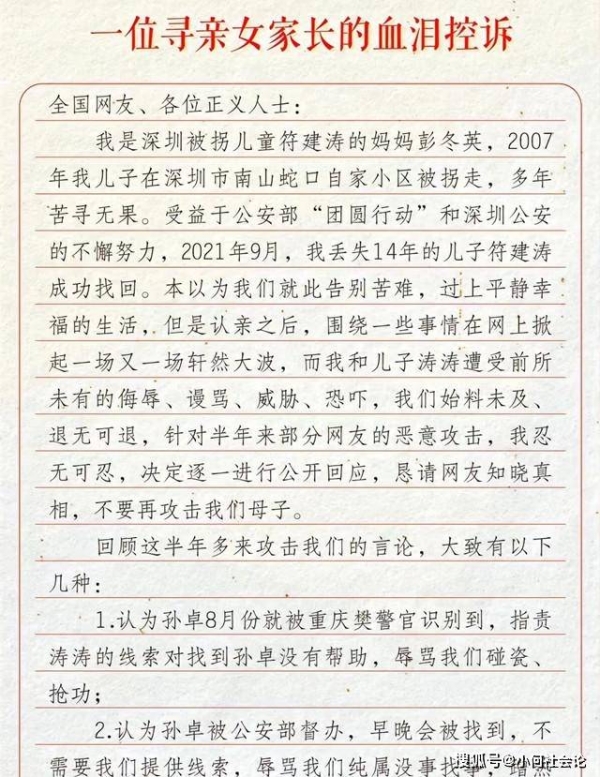 一位寻亲女家长的血泪控诉
全国网友、各位正义人士：
我是深圳被拐儿童符建涛的妈妈彭冬英，2007
年我儿子在深圳市南山蛇口自家小区被拐走，多年
苦寻无果。受益于公安部“团圆行动”和深圳公安
的不懈努力，2021年9月，我丢失14年的儿子符建涛
成功找回。本以为我们就此告别苦难，过上平静幸
福的生活，但是认亲之后，围绕一些事情在网上掀
起一场又一场轩然大波，而我和儿子涛涛遭受前所
未有的侮辱、谩骂、威胁、恐吓，我们始料未及、
退无可退，针对半年来部分网友的恶意攻击，我忍
无可忍，决定逐一进行公开回应，恳请网友知晓真
相，不要再攻击我们母子。
回顾这半年多来攻击我们的言论，大致有以下
几种：
1.认为孙卓8月份就被重庆樊警官识别到，指责
涛涛的线索对找到孙卓没有帮助，辱骂我们碰瓷、
抢功；
2.认为孙卓被公安部督办，早晚会被找到，不
需要我们提供线索，辱骂我们纯属没事找事，
搜狐号@小可社会论